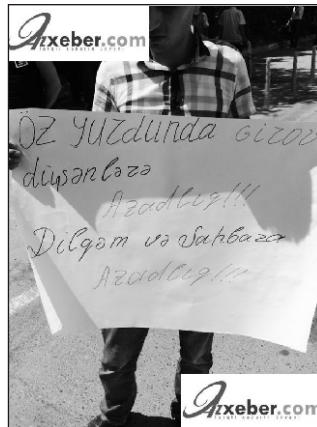 Azxeber.com
ÖZ YURDUNDA GİROV
düşənlərə
Azadlıq!!!
Dilqəm və Şahbaza
Azadlıq!!!
Azxeber.com